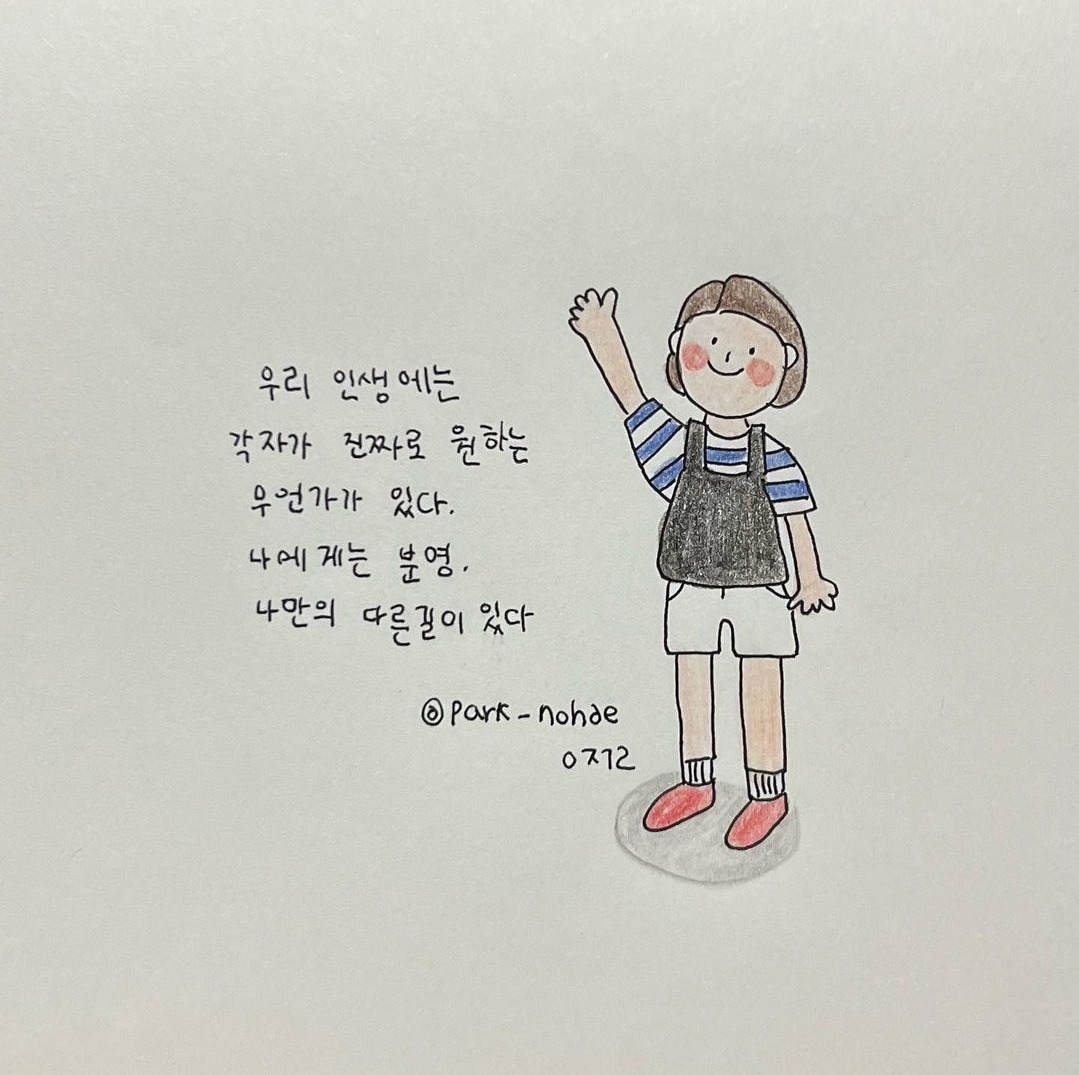 우리 인생에는
각자가 진짜로 원하는
무언가가 있다.
나에게는 분명.
나만의 다른길이 있다
@park_nohae
0712